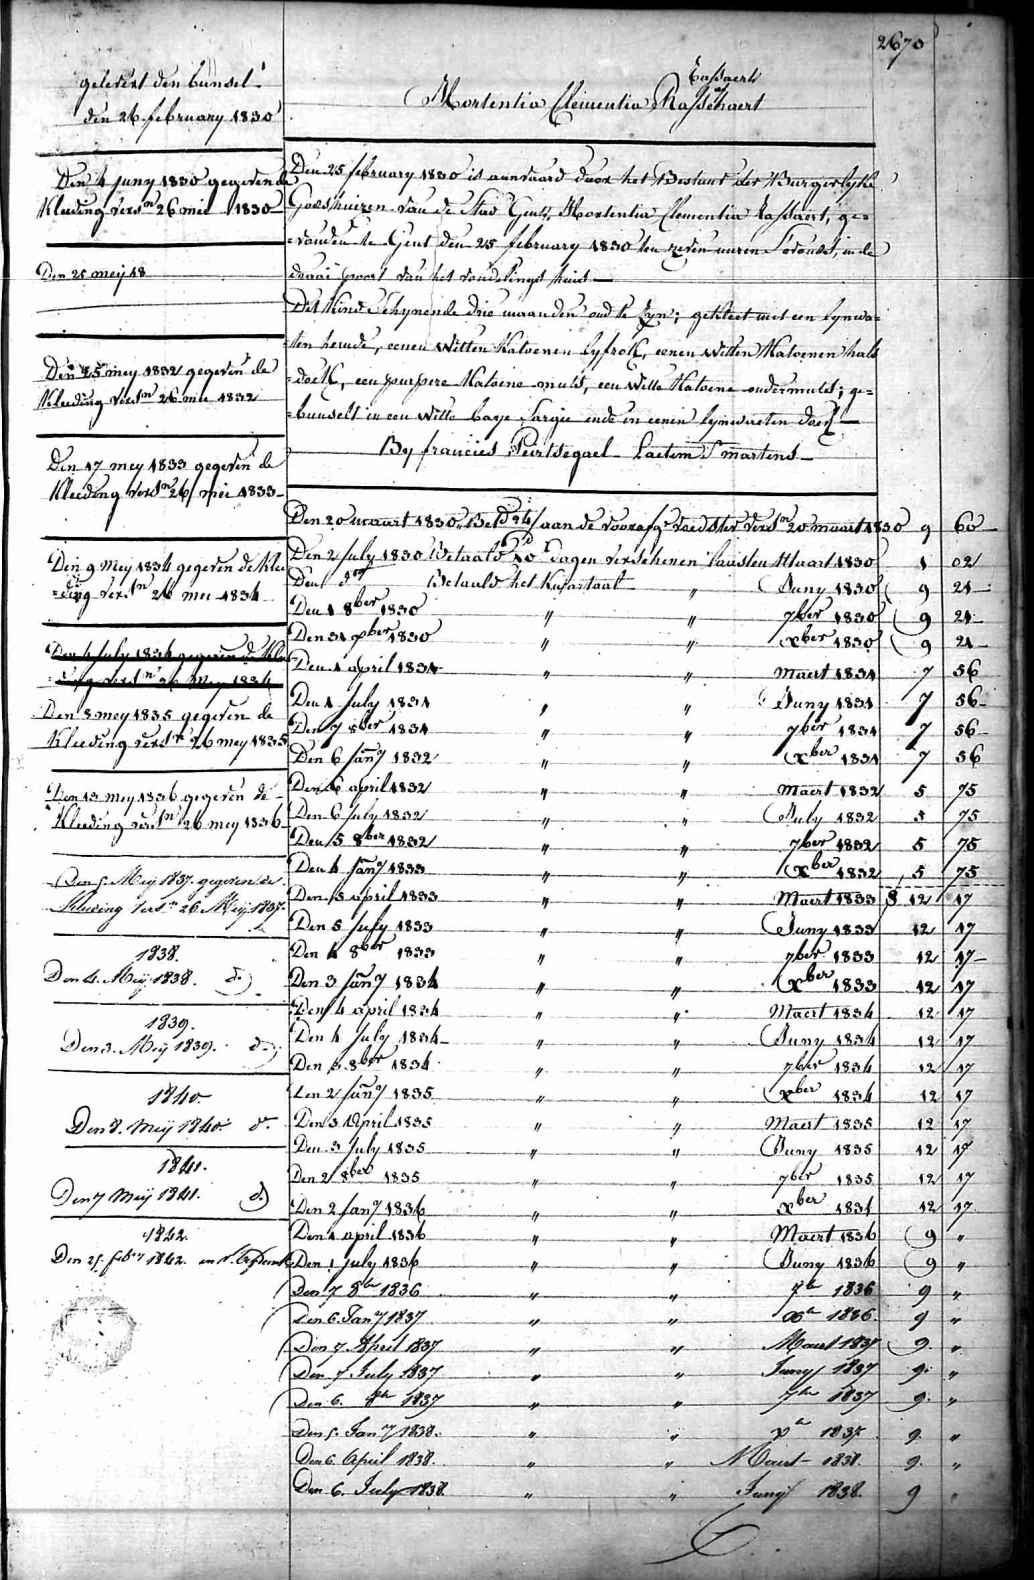 2670
gelevert den bunsel
den 26 february 1830
Rassaert
Hortentia Clementia Rasschaert
Den 4 juny 1830 gegeven de
Kleeding vers^n 26 mei 1830
Den 25 meij 18
Den 25 mey 1832 gegeven de
Kleeding vers^n 26 mei 1832
Den 17 mey 1833 gegeven de
Kleeding vers^n 26 mei 1833
Den 9 mey 1834 gegeven de Klee
=ding vers^n 26 mei 1834
Den 4 july 1834 gegeven de Klee
=ding vers^n 26 mey 1834
Den 8 mey 1835 gegeven de
Kleeding vers^n 26 mey 1835
Den 13 mey 1836 gegeven de
Kleeding vers^n 26 mey 1836
Den 5 Meij 1837. gegeven de
Kleeding vers^n 26 Meij 1837.
1838.
Den 4. Meij 1838. d.)
1839.
Den 3. Meij 1839. d.
1840
Den 8. Meij 1840. d.
1841.
Den 7 Meij 1841. d)
1842.
Den 25 feb^ry 1842. en
Den 25 february 1830 is aenvaard door het Bestuur der Burgerlyke
Godshuizen van de Stad Gent, Hortentia Clementia Rassaert, ge=
=vonden te Gent den 25 february 1830 ten zeven uuren s'avonds, in de
draai poort van het vondelings huis
Dit Kind schynende drie maanden oud te zyn; gekleet met een lynwa=
=ten hemde, eenen witten Katoenen lyfrok, eenen witten Katoenen hals
=doek, een purpere Katoene muts, een witte Katoene ondermuts; ge=
=bunselt in een witte baye sargie ende in eenen lynwaeten doek
By francies Peirtsegael Laetem S^t martens
Den 20 maart 1830. Bet^d aan de voorafg^e voedster vers^n 20 maart 1830 9 60
Den 2 july 1830 Betaald 10 dagen verschenen laasten Maart 1830 1 02
Den d^o Betaald het Kwartaal " Juny 1830 9 24
Den 1 8^ber 1830 " " 7^ber 1830 9 24
Den 31 x^ber 1830 " " x^ber 1830 9 24
Den 1 april 1831 " " maert 1831 7 56
Den 1 july 1831 " " Juny 1831 7 56
Den 7 8^ber 1831 " " 7^ber 1831 7 56
Den 6 jan^y 1832 " " x^ber 1831 7 56
Den 6 april 1832 " " maert 1832 5 75
Den 6 july 1832 " " July 1832 5 75
Den 5 8^ber 1832 " " 7^ber 1832 5 75
Den 4 jan^y 1833 " " x^ber 1832 5 75
Den 5 april 1833 " " Maert 1833 12 17
Den 5 july 1833 " " Juny 1833 12 17
Den 4 8^ber 1833 " " 7^ber 1833 12 17
Den 3 jan^y 1834 " " x^ber 1833 12 17
Den 4 april 1834 " " Maert 1834 12 17
Den 4 july 1834 " " Juny 1834 12 17
Den 3 8^ber 1834 " " 7^ber 1834 12 17
Den 2 jan^y 1835 " " x^ber 1834 12 17
Den 3 April 1835 " " Maert 1835 12 17
Den 3 july 1835 " " Juny 1835 12 17
Den 2 8^ber 1835 " " 7^ber 1835 12 17
Den 2 jan^y 1836 " " x^ber 1834 12 17
Den 1 april 1836 " " Maert 1836 9 "
Den 1 july 1836 " " Juny 1836 9 "
Den 7 8^br 1836 " " 7^br 1836 9 "
Den 6. Jan^y 1837 " " x^br 1836. 9 "
Den 7. April 1837 " " Maert 1837 9. "
Den 7 July 1837 " " Juny 1837 9. "
Den 6. 8^br 1837 " " 7^br 1837 9. "
Den 5. Jan^y 1838. " " x^r 1837. 9. "
Den 6. April 1838. " " Maert 1838. 9. "
Den 6. July 1838. " " Junij 1838. 9 "